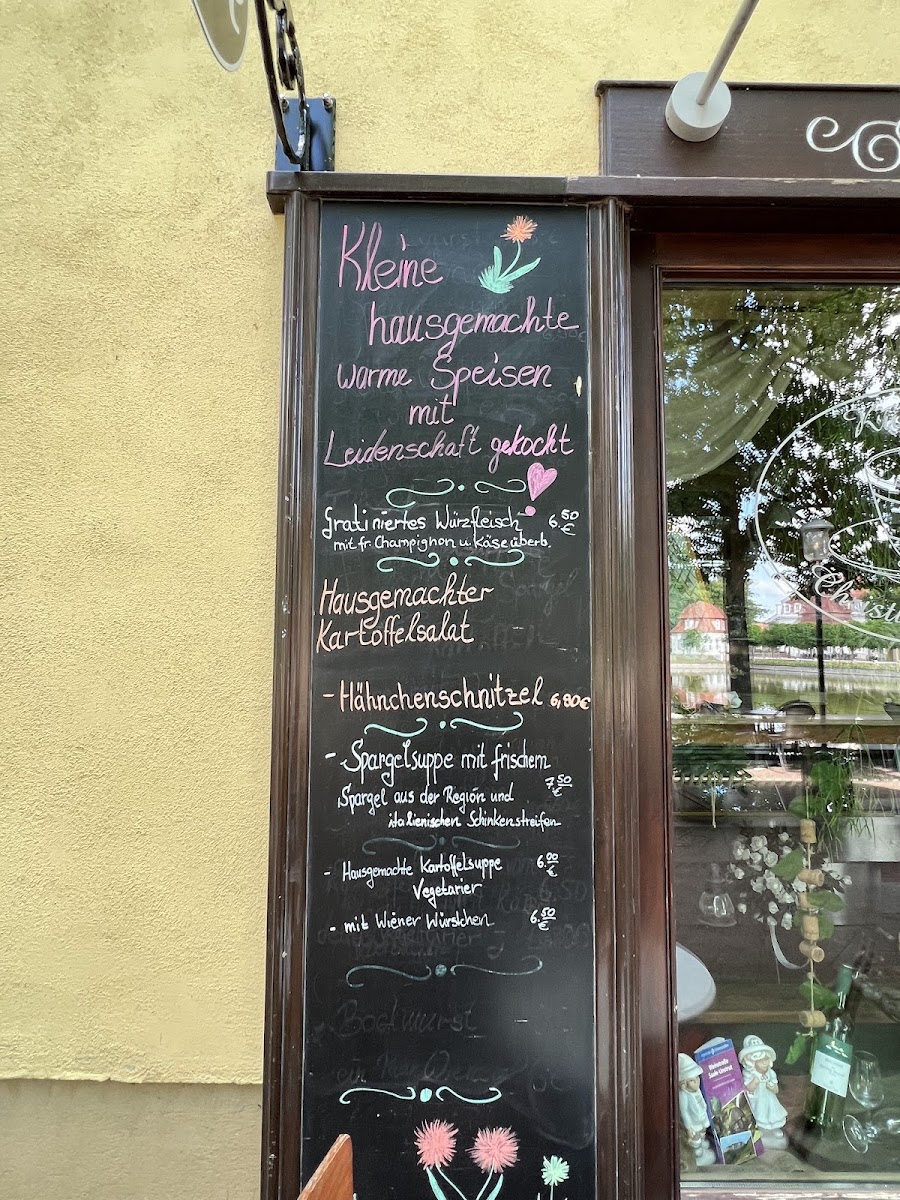 Kleine
hausgemachte
warme Speisen
mit
Leidenschaft gekocht
Gratiniertes Würzfleisch 6.50 €
mit fr. Champignon u. Käse überb.
Hausgemachter
Kartoffelsalat
- Hähnchenschnitzel 6,80€
- Spargelsuppe mit frischem
Spargel aus der Region und 7.50 €
italienischen Schinkenstreifen
- Hausgemachte Kartoffelsuppe 6.00 €
Vegetarier
- mit Wiener Würstchen 6.50 €
Bockwurst